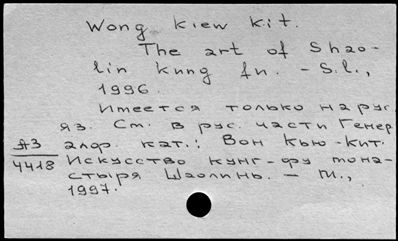 Wong kiew kit.
The art of Shao-
lin kung fu. - S.l.,
1996.
Имеется только на рус.
яз. См. в рус. части Генер
алф. кат.: Вон Кью-Кит.
A3
4418
Искусство кунг-фу мона-
стыря Шаолинь. - М.,
1997.